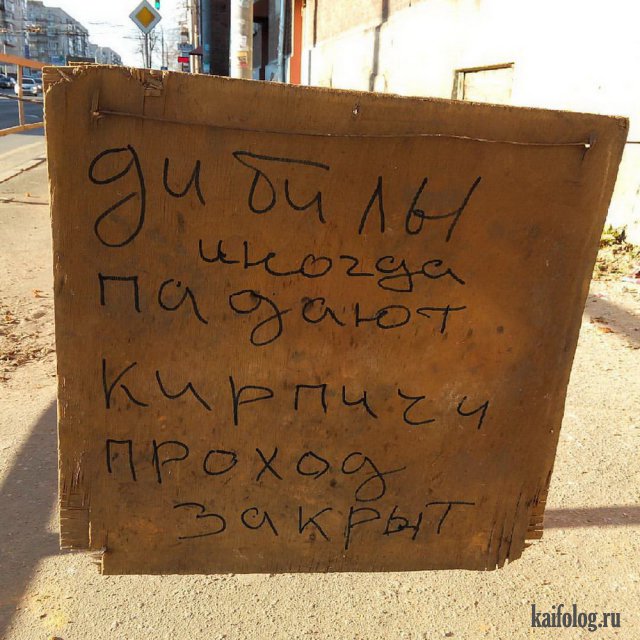 дибилы
иногда
падают
кирпичи
проход
закрыт
kaifolog.ru